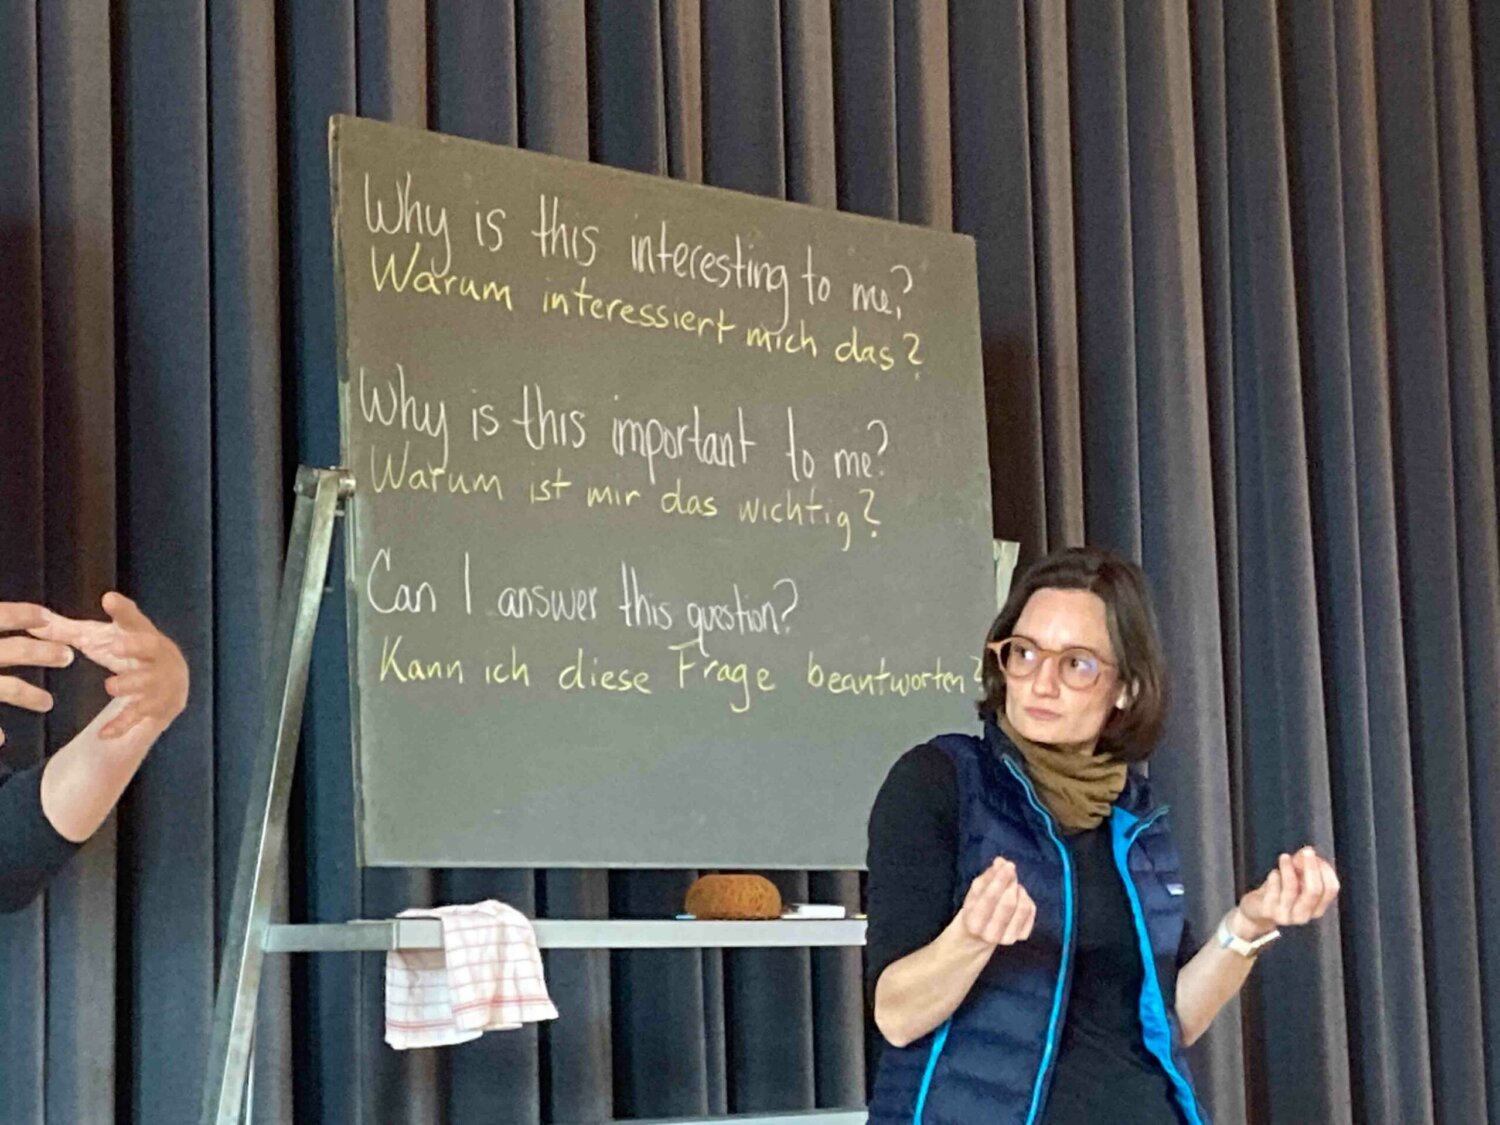 Why is this interesting to me?
Warum interessiert mich das?
Why is this important to me?
Warum ist mir das wichtig?
Can I answer this question?
Kann ich diese Frage beantworten?